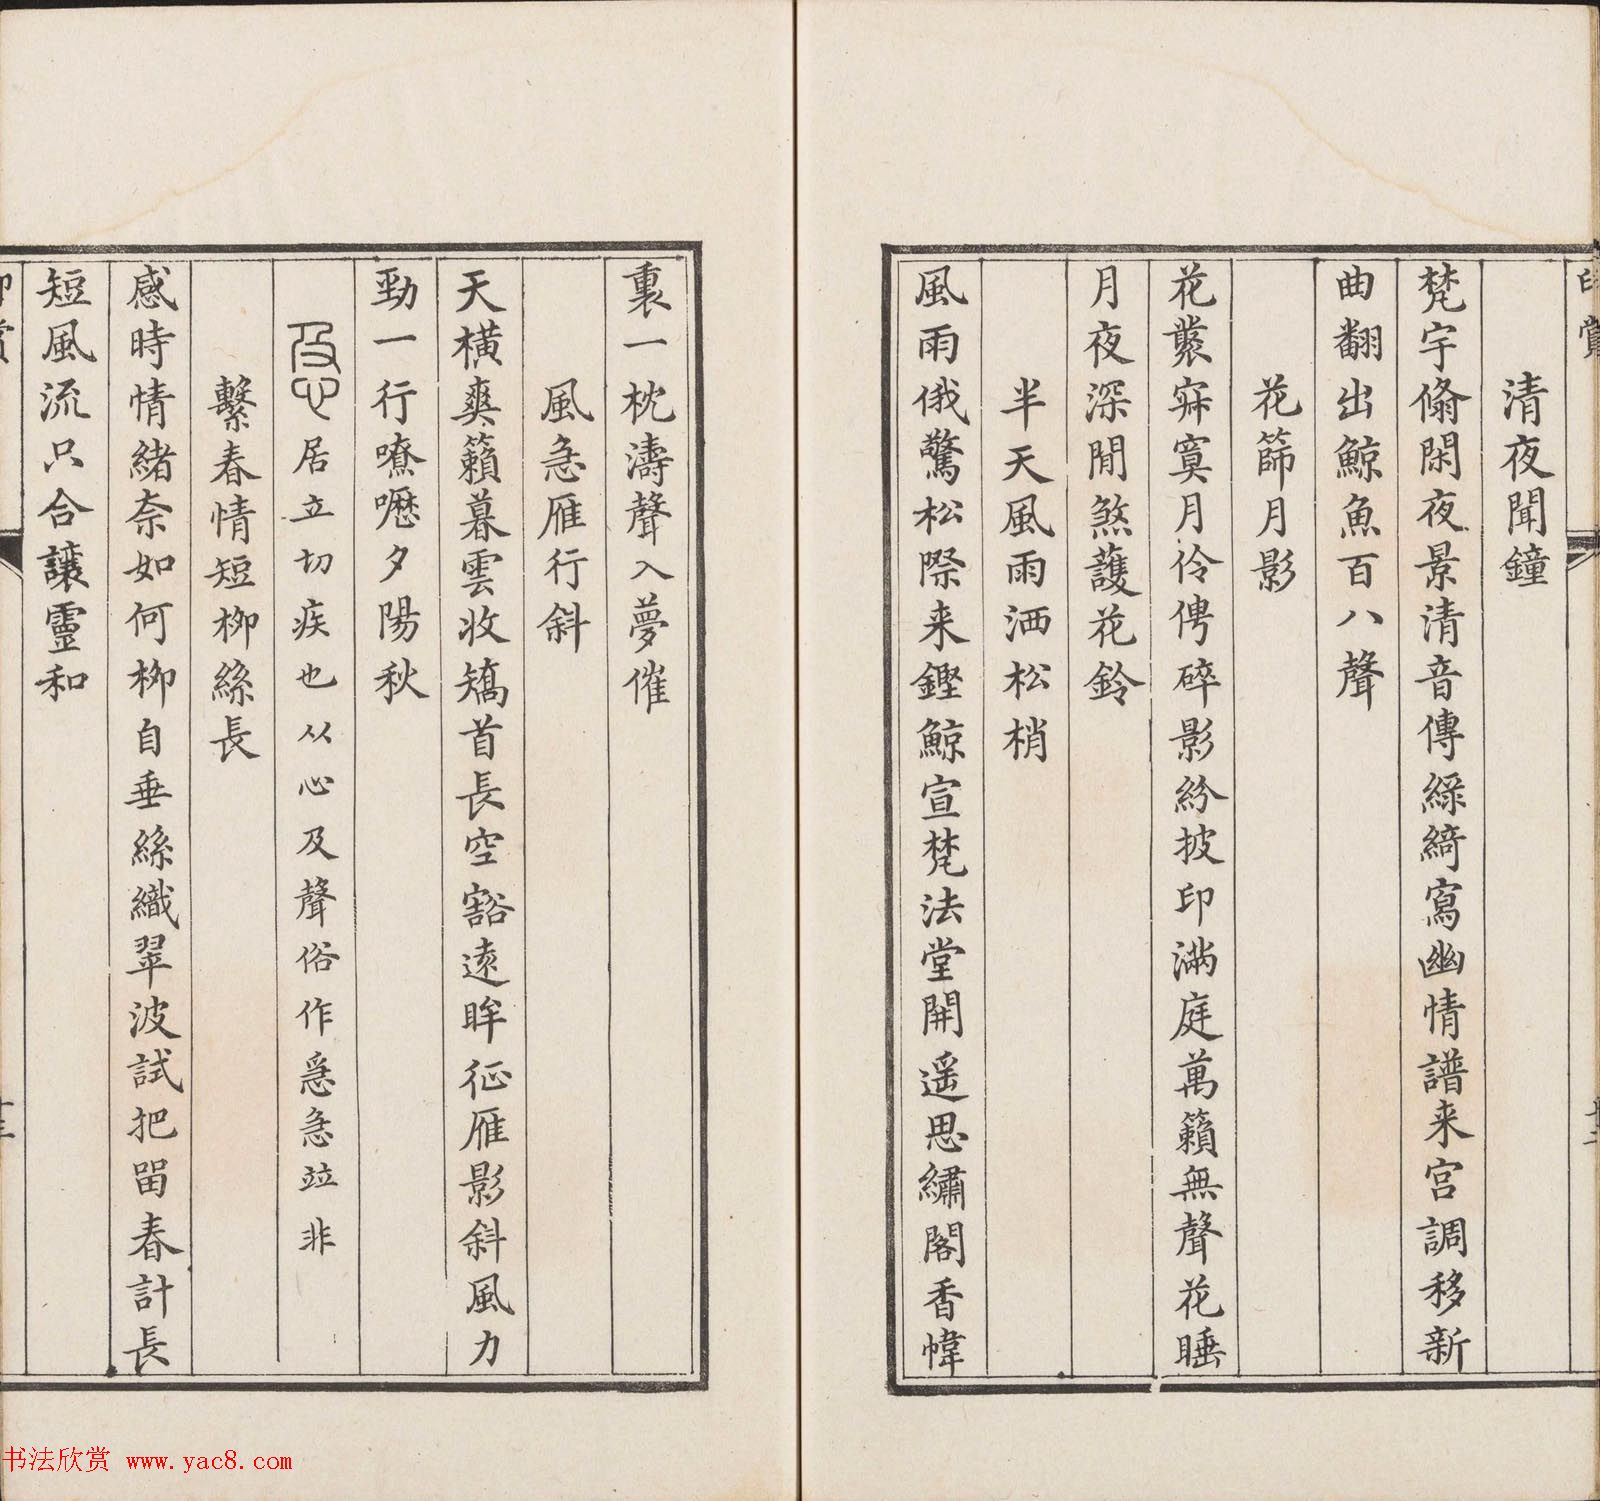 清夜聞鐘
梵宇翛閑夜景清音傳綠綺寫幽情譜来宮調移新
曲翻出鯨魚百八聲
花篩月影
花叢寂寞月伶俜碎影紛披印滿庭萬籟無聲花睡
月夜深閒煞護花鈴
半天風雨洒松梢
風雨俄驚松際来鏗鯨宣梵法堂開遥思繡閣香幃
裏一枕濤聲入夢催
風急雁行斜
天橫爽籟暮雲收矯首長空豁遠眸征雁影斜風力
勁一行嘹嚦夕陽秋
居立切疾也从心及聲俗作急急竝非
繫春情短柳絲長
感時情緒柰如何柳自垂絲織翠波試把留春計長
短風流只合讓靈和
书法欣赏 www.yac8.com